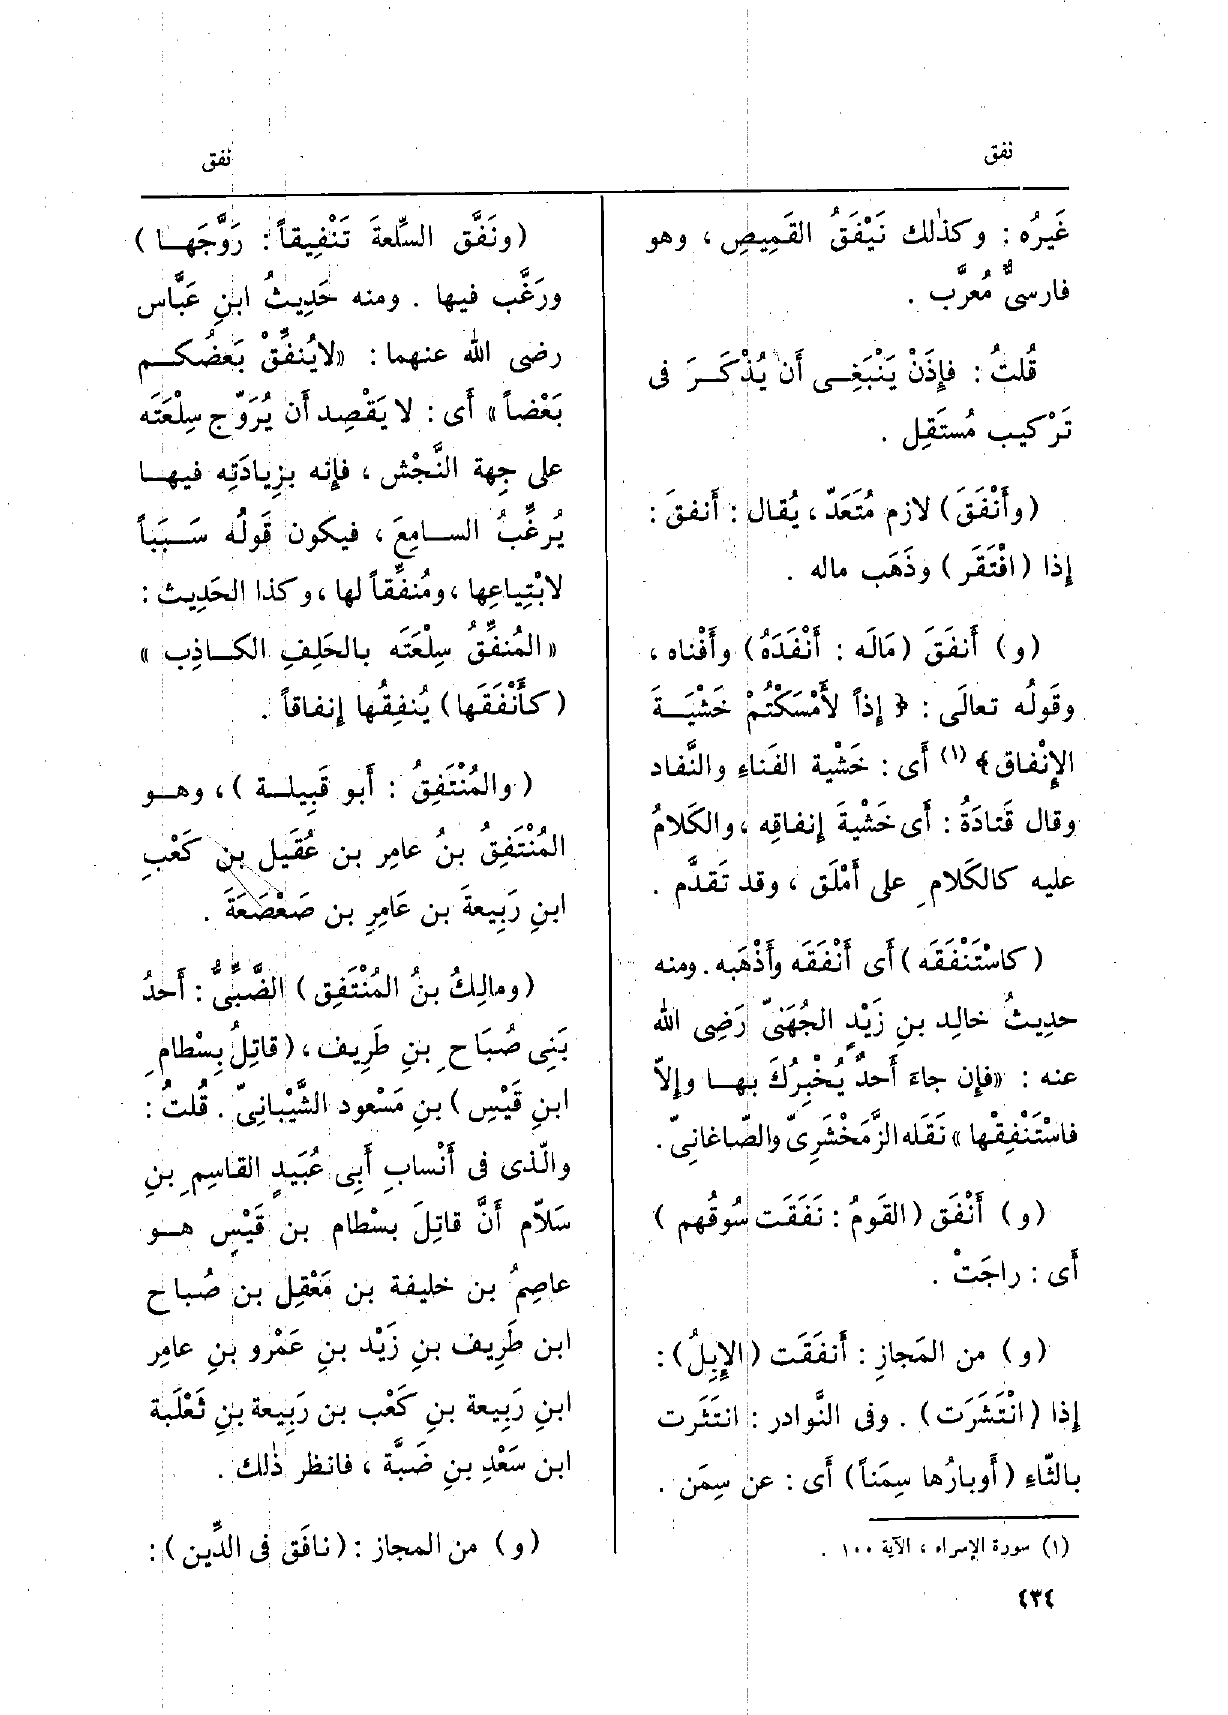 نفق
نفق
غَيرُه : وكذٰلك نَيْفَقُ القَمِيصِ ، وهو
فارسىٌّ مُعرَّب .
قُلتُ : فإِذَنْ يَنْبَغِى أَن يُذْكَرَ فى
تَرْكيب مُستَقِل .
(وأَنْفَقَ) لازم مُتَعَدّ ، يُقال : أَنفقَ :
إِذا (افْتَقَر) وذَهَب ماله .
(و) أَنفَقَ (مَالَه : أَنْفَدَهُ) وأَفْناه ،
وقَولُه تعالَى : ﴿ إِذاً لأَمْسَكْتُمْ خَشْيَةَ
الإِنْفاق﴾ (١) أَى : خَشْية الفَناءِ والنَّفاد
وقال قَتادَةُ : أَى خَشْيةَ إِنفاقِه ، والكَلامُ
عليه كالكَلامِ على أَمْلَق ، وقد تَقدَّم .
(كاسْتَنْفَقَه) أَى أَنْفَقَه وأَذْهَبه . ومنه
حدِيثُ خالِد بنِ زَيْدٍ الجُهَنىّ رَضِى الله
عنه : «فإِن جاءَ أَحدٌ يُخْبِرُكَ بها وإِلاّ
فاسْتَنْفِقْها» نَقَله الزَّمَخْشَرِىّ والصّاغانِىّ .
(و) أَنْفَق (القَومُ : نَفَقَت سُوقُهم )
أَى : راجَتْ .
(و) من المَجازِ : أَنفَقَت (الإِبِلُ) :
إِذا (انْتَشَرَت) . وفى النَّوادر : انتَثَرت
بالثّاءِ (أَوبارُها سِمَناً) أَى : عن سِمَن .
(١) سورة الإسراء ، الآية ١٠٠ .
٤٣٤
(ونَفَّق السِّلعةَ تَنْفِيقاً : رَوَّجَها )
ورَغَّب فيها . ومنه حَدِيثُ ابنِ عَبَّاس
رضى الله عنهما : «لايُنفِّقْ بَعضُكم
بَعْضاً» أَى : لا يَقْصِد أَن يُرَوّج سِلْعَتَه
على جِهة النَّجْش ، فإِنه بزِيادَتِه فيها
يُرغِّبُ السامِعَ ، فيكون قَولُه سَبَباً
لابْتِياعِها ، ومُنفِّقاً لها ، وكذا الحَدِيث :
«المُنفِّقُ سِلْعَتَه بالحَلِفِ الكاذِب »
(كأَنْفَقَها) يُنفِقُها إِنفاقاً .
(والمُنْتَفِقُ : أَبو قَبِيلة ) ، وهو
المُنْتَفِقُ بنُ عامِر بن عُقَيل بن كَعْبِ
ابنِ رَبِيعةَ بن عَامِرِ بن صَعْصَعَةَ .
(ومالِكُ بنُ المُنْتَفِق) الضَّبِّىُّ : أَحدُ
بَنِى صُبَاحِ بنِ طَرِيف ، (قاتِلُ بِسْطامِ
ابنِ قَيْسِ) بنِ مَسْعود الشَّيْبانِىّ . قُلتُ :
والّذى فى أَنْسابِ أَبِى عُبَيدٍ القاسِمِ بنِ
سَلاّم أَنَّ قاتِلَ بسْطام بن قَيْسٍ هو
عاصِمُ بن خليفة بن مَعْقِل بن صُباح
ابن طَرِيف بنِ زَيْد بنِ عَمْرو بنِ عامِر
ابنِ رَبِيعة بنِ كَعْب بن رَبِيعة بنِ ثَعْلَبة
ابن سَعْدِ بنِ ضَبَّة ، فانظر ذٰلك .
(و) من المجاز : (نافَق فى الدِّين) :